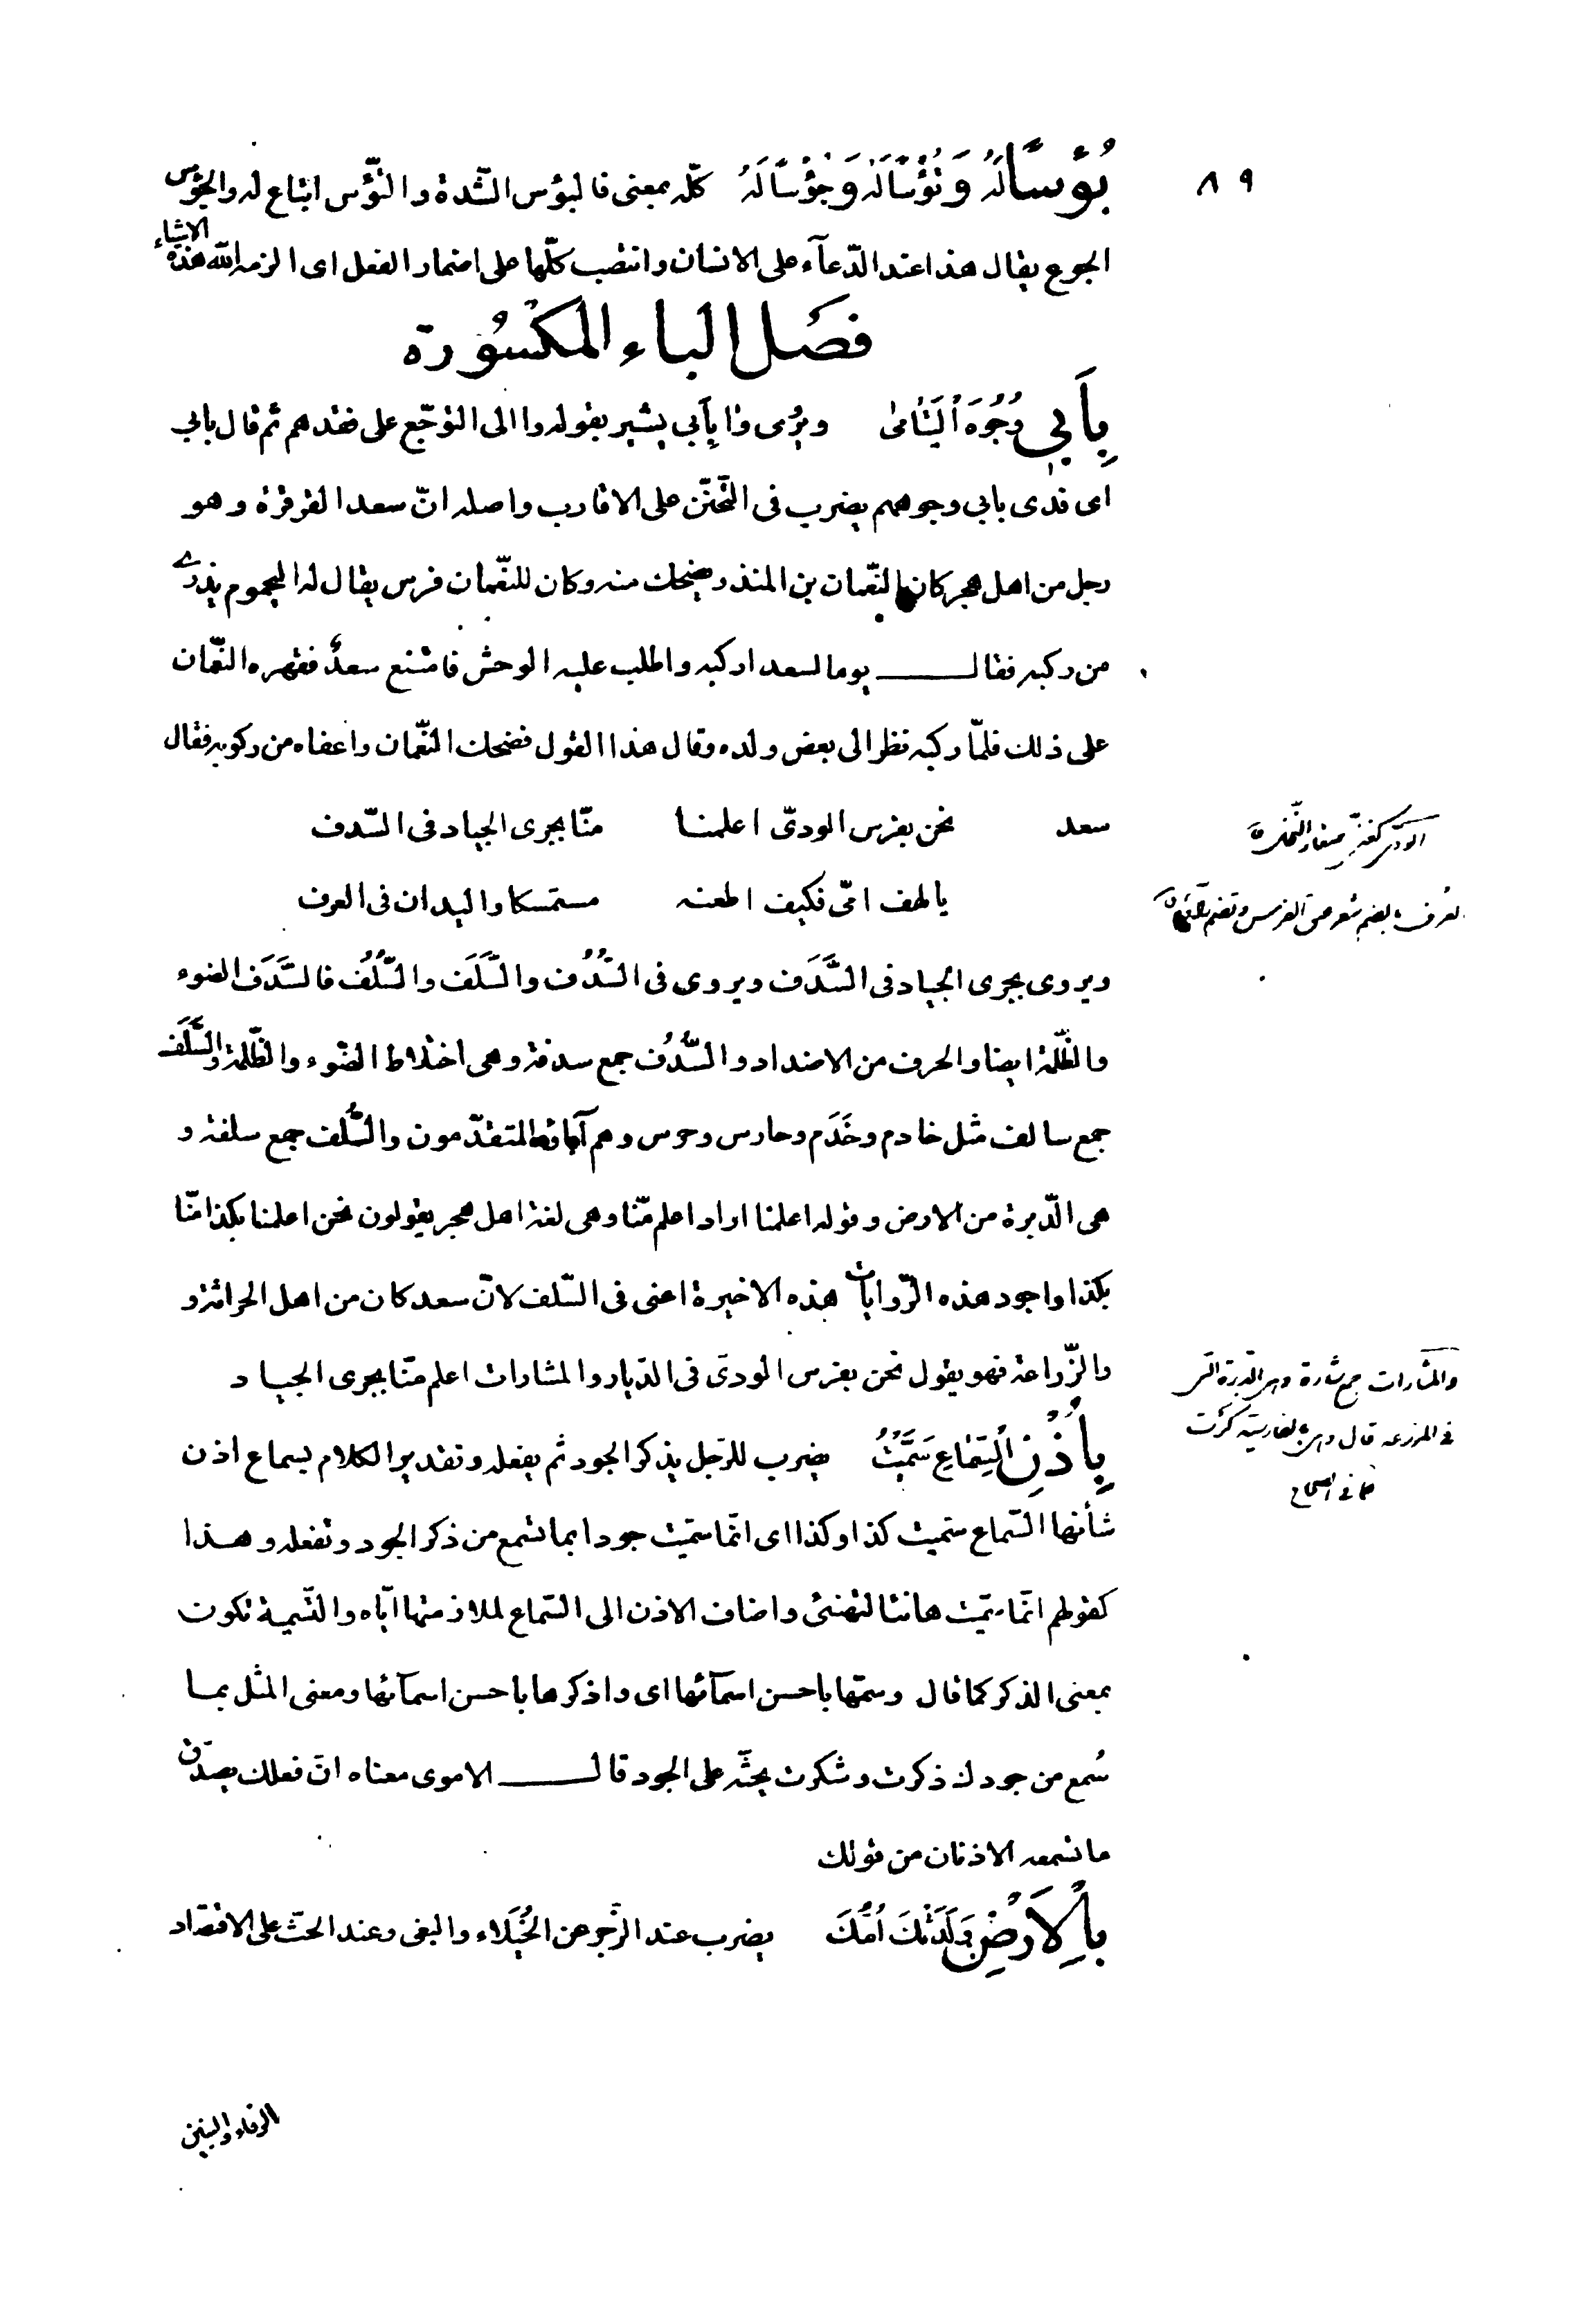 ٨٩
بُؤْسًا لَهُ وَ تُؤْسًا لَهُ وَ جُؤْسًا لَهُ كلّه بمعنى فالبؤس الشّدة و التّؤس اتباع له والجؤس
الجوع يقال هذا عند الدّعآء على الانسان وانتصب كلّها على اضمار الفعل اى الزمه الله هذه الاشياء
فصَل الباء المكسُورة
بِأَبِي وُجُوهَ اليَتَامى ويُروى وا بِأَبي يشير بقوله وا الى التوجّع على فقدهم ثم قال بابي
اى فدى بابي وجوههم يضرب فى التّحنّن على الاقارب واصله انّ سعد القرقرة وهو
رجل من اهل هجر كان النّعمان بن المنذر يضحك منه وكان للنّعمان فرس يقال له اليحموم يردى
من ركبه فقال يوما لسعد اركبه واطلب عليه الوحش فامتنع سعدٌ فقهره النّعمان
على ذلك فلمّا ركبه نظر الى بعض ولده وقال هذا القول فضحك النّعمان واعفاه من ركوبه فقال
سعد نحن بغرس الودىّ اعلمنا منّا بجرى الجياد فى السّدف
يا لهف امّى فكيف اطعنه مستمسكا واليدان فى العرف
ويروى بجرى الجياد فى السَّدَف ويروى فى السُّدُف والسَّلَف والسُّلُف فالسَّدَف الضوء
والظّلمة ايضا والحرف من الاضداد والسُّدُف جمع سدفة وهى اختلاط الضّوء والظّلمة والسَّلَف
جمع سالف مثل خادم وخَدَم وحارس وحرس وهم آباؤه المتقدّمون والسُّلف جمع سلفة و
هى الدّبرة من الارض وقوله اعلمنا اراد اعلم منّا وهى لغة اهل هجر يقولون نحن اعلمنا بكذا منّا
بكذا واجود هذه الرّوايات هذه الاخيرة اعنى فى السّلف لانّ سعد كان من اهل الحراثة و
والزّراعة فهو يقول نحن بغرس الودىّ فى الدّيار والمشارات اعلم منّا بجرى الجياد
بِأُذُنِ السَّمَاعِ سَمَّيْتُ يضرب للرّجل يذكر الجود ثم يفعله وتقدير الكلام بسماع اذن
شأنها السّماع سمّيت كذا وكذا اى انّما سمّيت جودا بما تسمع من ذكر الجود وتفعله وهذا
كقولهم انّما سمّيت هانئا لتهنئ واضاف الاذن الى السّماع لملازمتها ايّاه والتّسمية تكون
بمعنى الذكر كما قال وسمّها باحسن اسمآئها اى واذكرها باحسن اسمآئها ومعنى المثل بما
سُمع من جودك ذكرت وشكرت يحثّه على الجود قال الاموى معناه انّ فعلك يصدّق
ما تسمعه الاذنان من قولك
بِالأَرْضِ وَلَدَتْكَ أُمُّكَ يضرب عند الزّجر عن الخُيَلاء والبغى وعند الحثّ على الاقتصاد
الودىّ كغنىّ صغار النّخل
العرف بالضم شعر عنق الفرس وتضم راؤه
والمشارات جمع مشارة وهى الدّبرة الّتى
فى المزرعة قال وهى بالفارسيّة كرت
كما فى الصحاح
الرفاء والبنين